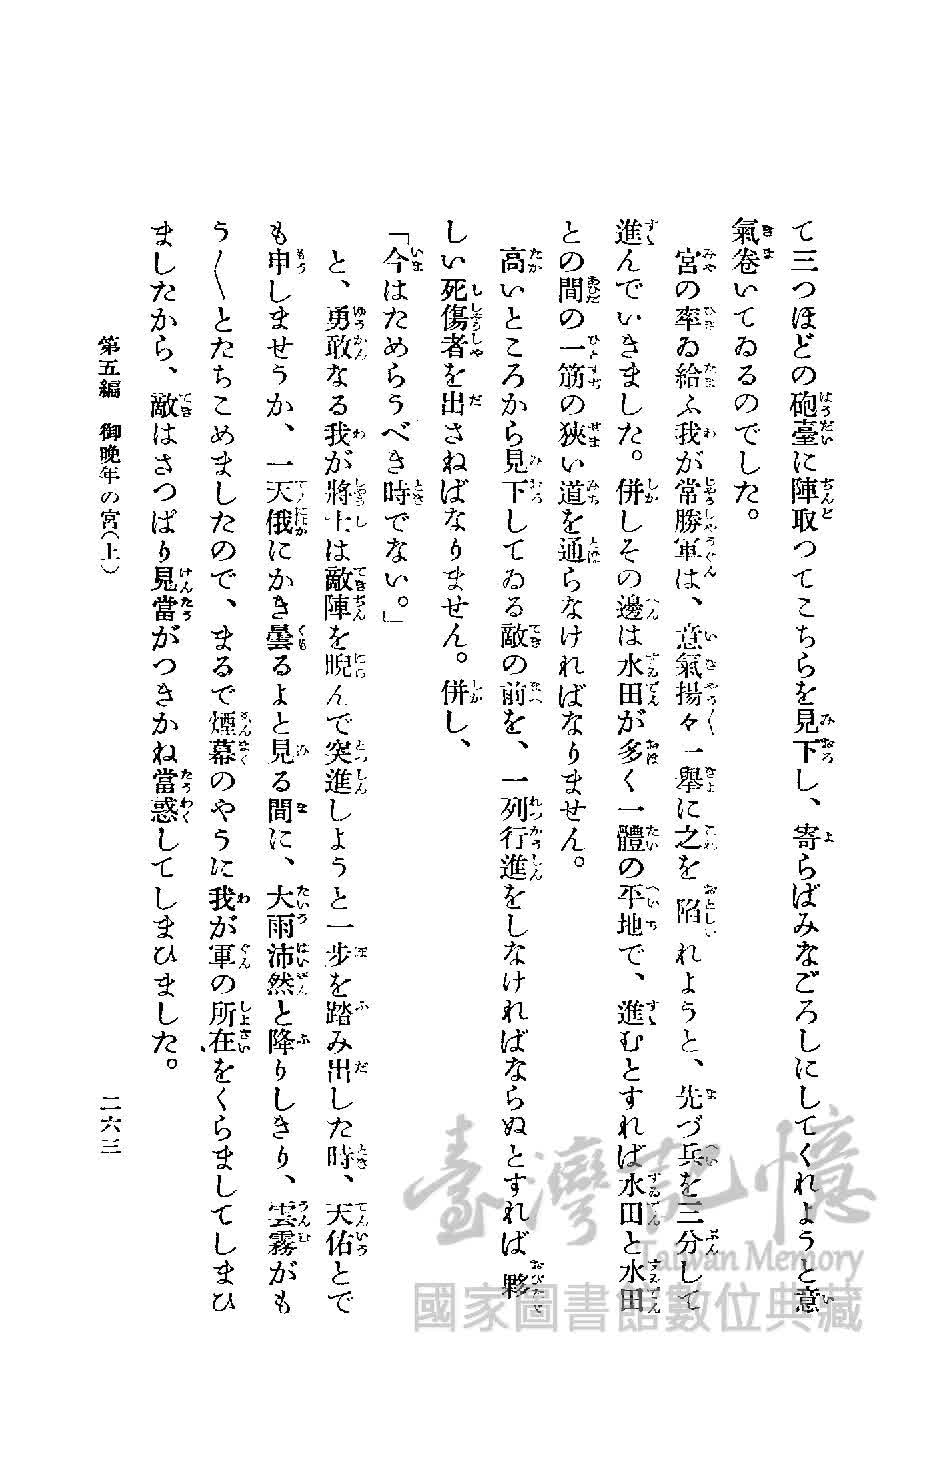 て三つほどの砲臺に陣取つてこちらを見下し、寄らばみなごろしにしてくれようと意
氣卷いてゐるのでした。
宮の率ゐ給ふ我が常勝軍は、意氣揚々一擧に之を陷れようと、先づ兵を三分して
進んでいきました。併しその邊は水田が多く一體の平地で、進むとすれば水田と水田
との間の一筋の狹い道を通らなければなりません。
高いところから見下してゐる敵の前を、一列行進をしなければならぬとすれば夥
しい死傷者を出さねばなりません。併し、
「今はためらうべき時でない。」
と、勇敢なる我が將士は敵陣を睨んで突進しようと一步を踏み出した時、天佑とで
も申しませうか、一天俄にかき曇るよと見る間に、大雨沛然と降りしきり、雲霧がも
う〳〵とたちこめましたので、まるで煙幕のやうに我が軍の所在をくらましてしまひ
ましたから、敵はさつぱり見當がつきかね當惑してしまひました。
第五編 御晩年の宮(上)
二六三
臺灣記憶
Taiwan Memory
國家圖書館數位典藏